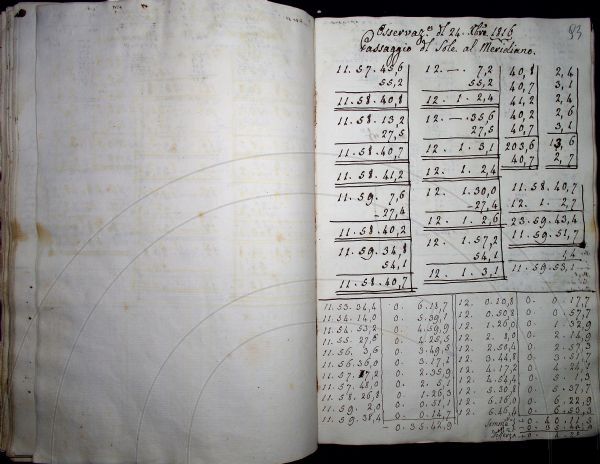 83
Osservaz.e del 24. Xbre 1816
Passaggio del Sole al Meridiano.
11. 57. 45,6
55,2
11. 58. 40,8
11. 58. 13,2
27,5
11. 58. 40,7
11. 58. 41,2
11. 59. 7,6
-27,4
11. 58. 40,2
11. 59. 34,8
54,1
11. 58. 40,7
12. — . 7,2
55,2
12. 1. 2,4
12. — . 35,6
27,5
12. 1. 3,1
12. 1. 2,4
12. 1. 30,0
-27,4
12. 1. 2,6
12. 1. 57,2
54,1
12. 1. 3,1
40,8
40,7
41,2
40,2
40,7
203,6
40,7
2,4
3,1
2,4
2,6
3,1
13,6
2,7
11. 58. 40,7
12. 1. 2,7
23. 59. 43,4
11. 59. 51,7
1,4
11. 59. 53,1
11. 53. 34,4 0. 6. 18,7
11. 54. 14,0 0. 5. 39,1
11. 54. 53,2 0. 4. 59,9
11. 55. 27,6 0. 4. 25,5
11. 56. 3,6 0. 3. 49,5
11. 56. 36,0 0. 3. 17,1
11. 57. 17,2 0. 2. 35,9
11. 57. 48,0 0. 2. 5,1
11. 58. 26,8 0. 1. 26,3
11. 59. 2,0 0. 0. 51,1
11. 59. 38,4 0. 0. 14,7
- 0. 35. 42,9
12. 0. 10,8 0. 0. 17,7
12. 0. 50,8 0. 0. 57,7
12. 1. 26,0 0. 1. 32,9
12. 2. 8,0 0. 2. 14,9
12. 2. 50,4 0. 2. 57,3
12. 3. 44,8 0. 3. 51,7
12. 4. 17,2 0. 4. 24,1
12. 4. 54,4 0. 5. 1,3
12. 5. 30,8 0. 5. 37,7
12. 6. 16,0 0. 6. 22,9
12. 6. 46,4 0. 6. 53,3